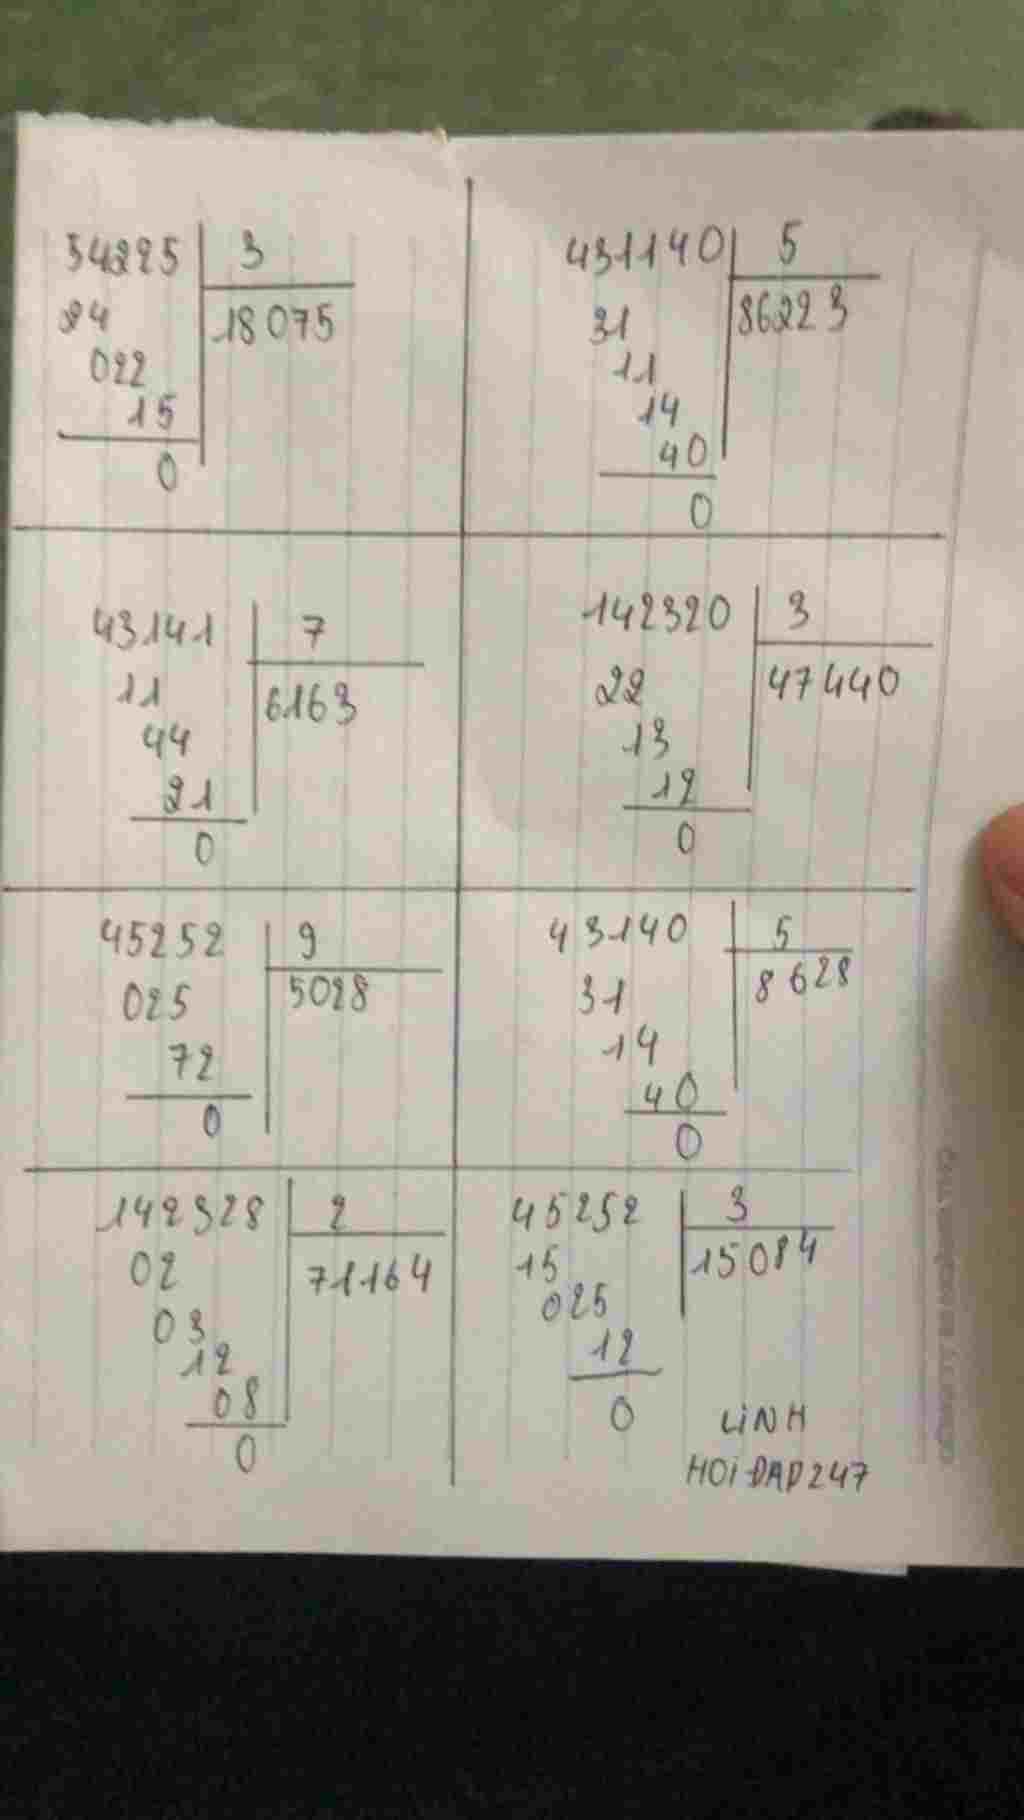 54225 3
24 18075
022
15
0
431140 5
31 86223
11
14
40
0
43141 7
11 6163
44
21
0
142320 3
22 47440
13
12
0
45252 9
025 5028
72
0
43140 5
31 8628
14
40
0
142328 2
02 71164
03
12
08
0
45252 3
15 15084
025
12
0
LiNH
HOiĐAP247